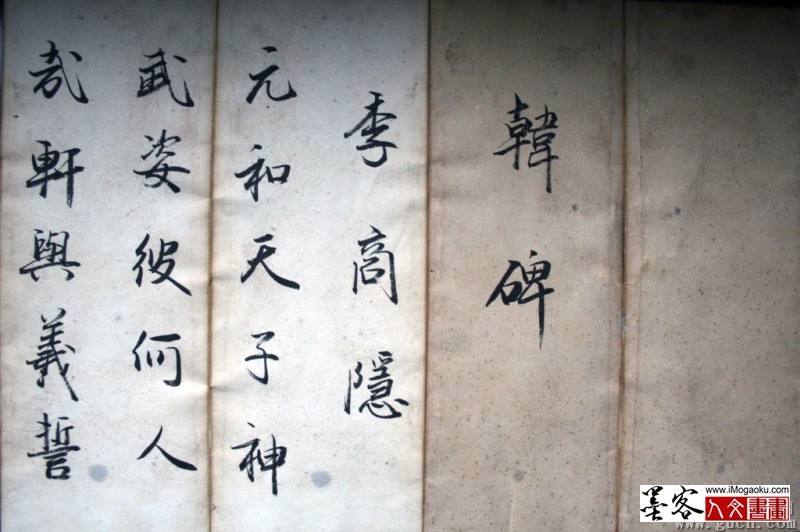 韓碑
李商隱
元和天子神
武姿彼何人
㢤軒與羲誓
墨客
www.iMogaoku.com
人文書畫
www.gucn.com